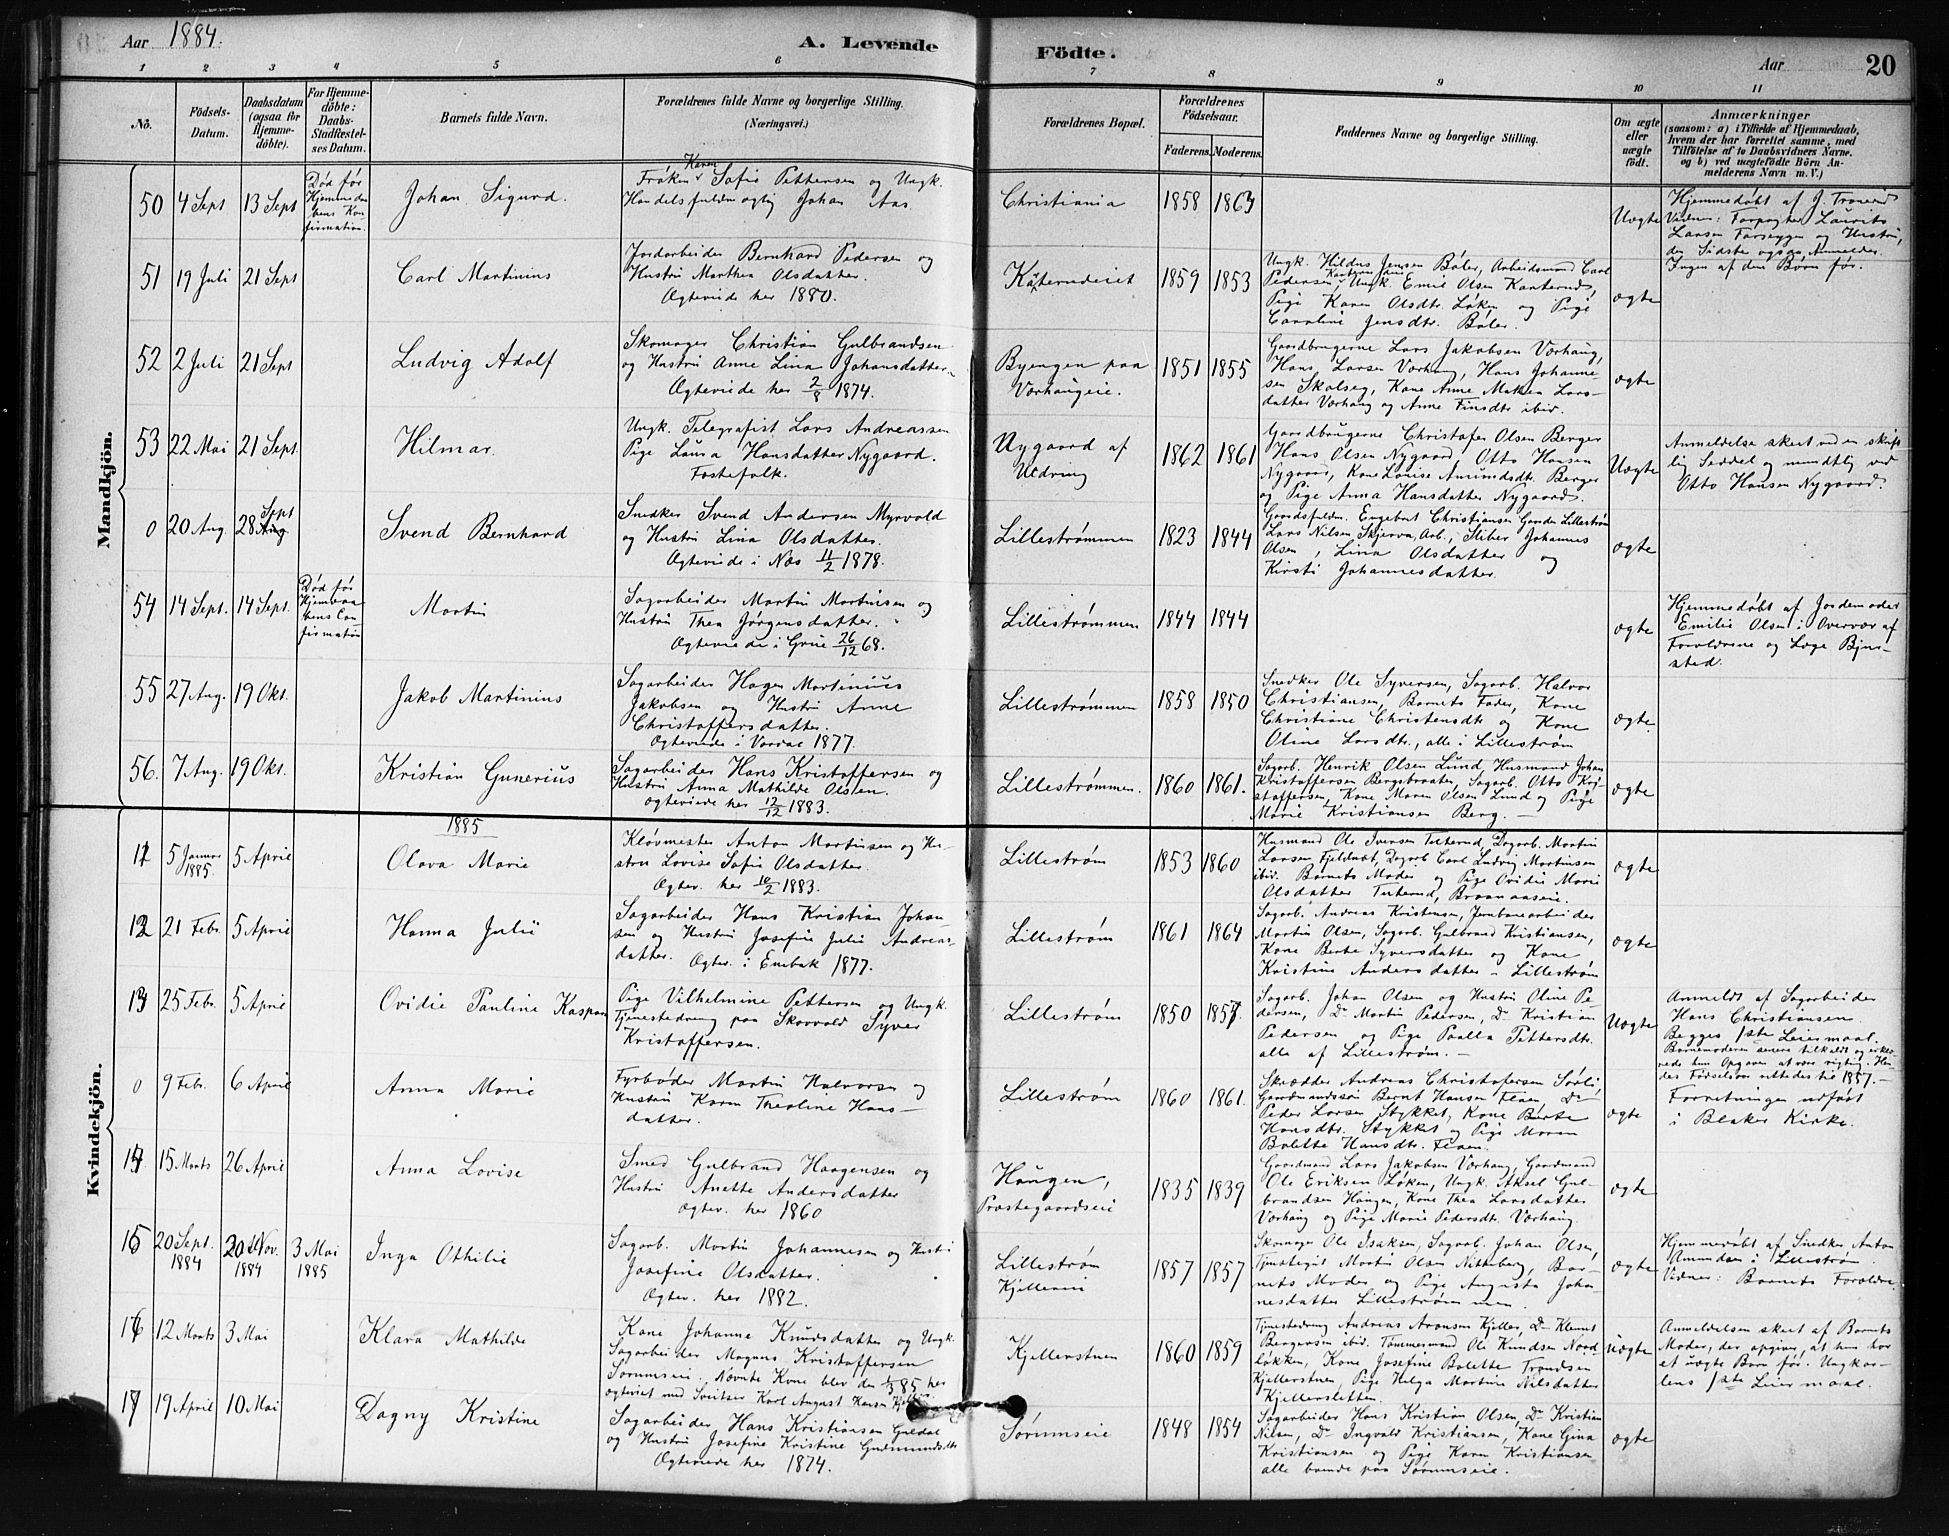 Aar 1884.
A. Levende Födte.
Aar
20
1 2 3 4 5 6 7 8 9 10 11
No.
Födsels-Datum.
Daabsdatum (ogsaa for Hjemmedöbte).
For Hjemmedöbte: Daabs-Stadfæstelses Datum.
Barnets fulde Navn.
Forældrenes fulde Navne og borgerlige Stilling.
(Næringsvei.)
Forældrenes Bopæl.
Forældrenes Födselsaar.
Faderens. Moderens.
Faddernes Navne og borgerlige Stilling.
Om ægte eller uægte födt.
Anmærkninger
(saasom: a) i Tilfælde af Hjemmedaab,
hvem der har forrettet samme, med
Tilföielse af to Daabsvidners Navne.
og b) ved uægtefödte Börn Anmelderens Navn m. V.)
Mandkjön.
50 4 Sept 13 Sept
Død før
Hjemmedaabens Confirmation.
Johan Sigurd.
Frøken Karen Sofie Pettersen og Ungk.
Handelsfuldmægtig Johan Aas.
Christiania 1858 1863
Uægte
Hjemmedøbt af J. Tronerud
Vidner: Forpagter Laurits
Larsen Farseggen og Hustru,
den Sidste ogsaa Anmelder.
51 19 Juli 21 Sept
Carl Martinius
Jordarbeider Bernhard Pedersen og
Hustru Marthea Olsdatter.
Ægteviede her 1880.
Katerudeiet 1859 1853
Ungk. Hildus Jensen Bøler, Arbeidsmand Carl
Pedersen, Ungk. Emil Olsen Kanterud,
Pige Karen Olsdtr. Løken og Pige
Caroline Jensdtr. Bøler.
ægte
Ingen af dem Børn før.
52 2 Juli 21 Sept
Ludvig Adolf
Skomager Christian Gulbrandsen
og Hustru Anne Lina Johansdatter.
Ægteviede her 2/8 1874.
Byengen paa
Vorhaugeie.
1851 1855
Gaardbrugerne Lars Jakobsen Vorhaug,
Hans Larsen Vorhaug, Hans Johannesen
Skolseg, Kone Anne Mathea Larsdatter
Vorhaug og Anne Finsdtr ibid.
ægte
53 22 Mai 21 Sept
Hilmar.
Ungk. Telegrafist Lars Andreassen
Pige Laura Hansdatter Nygaard.
Fostefolk.
Nygaard af
Uldring
1862 1861
Gaardbrugerne Christofer Olsen Berger
Hans Olsen Nygaard, Otto Hansen
Nygaard, Kone Louise Amundsdtr. Berger
og Pige Anna Hansdatter Nygaard.
Uægte
Anmeldelse skeet ved en skriftlig
Seddel og mundtlig ved
Otto Hansen Nygaard.
0 20 Aug. 28 Sept
Svend Bernhard
Snedker Svend Andersen Myrvold
og Hustru Lina Olsdatter.
Ægteviede i Næs 11/2 1878.
Lillestrømmen 1823 1844
Gaardsfuldm. Engebret Christiansen Gander Lillestrøm
Lars Nilsen Skjerva, Arb., Sliber Johannes
Olsen, Lina Olsdatter og
Kirsti Johannesdatter.
ægte
54 14 Sept. 14 Sept.
Død før
Hjemmedaabens Confirmation
Martin
Sagarbeider Martin Martinsen og
Hustru Thea Jørgensdatter.
Ægteviede i Grue 26/12 68.
Lillestrømmen 1844 1844
ægte
Hjemmedøbt af Jordemoder
Emilie Olsen i Overvær af
Forældrene og Læge Bjørnstad.
55 27 Aug. 19 Okt.
Jakob Martinius
Sagarbeider Hagen Martinius
Jakobsen og Hustru Anne
Christoffersdatter.
Ægteviede i Vardal 1877.
Lillestrømmen 1858 1850
Snedker Ole Syversen, Sagarb. Halvor
Christiansen, Barnets Fader, Kone
Christiane Christensdtr og Kone
Oline Larsdtr., alle i Lillestrøm
ægte.
56. 7 Aug. 19 Okt.
Kristian Gunerius
Sagarbeider Hans Kristoffersen og
Hustru Anna Mathilde Olsen.
ægteviede her 12/12 1883.
Lillestrømmen. 1860 1861.
Sagarb. Henrik Olsen Lund, Husmand Johan
Kristoffersen Bergsbraaten, Sagarb. Otto Kristoffersen,
Kone Maren Olsen Lund og Pige
Marie Kristiansen Berg.
ægte
Kvindekjön.
1885
11 5 Januar 1885. 5 April
Olava Marie
Kløvmester Anton Martinsen og Hustru
Lovise Sofie Olsdatter.
Ægtev. her 10/2 1883.
Lillestrøm 1853 1860
Husmand Ole Iversen Tuterud, Dagarb. Martin
Larsen Fjeldnæbt, Dagarb Carl Ludvig Martinsen
ibid. Barnets Moder og Pige Ovidie Marie
Olsdatter Tuterud, Braanaaseie.
ægte
12 21 Febr. 5 April
Hanna Julie
Sagarbeider Hans Kristian Johansen
og Hustru Josefine Julie Andreasdatter.
Ægtev. i Enebak 1877.
Lillestrøm 1861 1864
Sagarb. Andreas Kristensen, Jernbanearbeider
Martin Olsen, Sagarb. Gulbrand Kristiansen,
Kone Berte Syversdatter og Kone
Kristine Andersdatter - Lillestrøm
ægte
13 25 Febr. 5 April
Ovidie Pauline Kaspara
Pige Vilhelmine Pettersen og Ungk.
Tjenestedreng paa Skarvold Syver
Kristoffersen.
Lillestrøm 1850 1857.
Sagarb. Johan Olsen og Hustru Oline Pedersen,
Do Martin Pedersen, Do Kristian
Pedersen og Pige Paulla Pettersdtr.
alle af Lillestrøm.
Uægte
Anmeldt af Sagarbeider
Hans Christiansen.
Begges 1ste Leiermaal.
Barnemoderen senere tilkaldt og erklærede
hun Opgaven at være rigtig. Hendes
Fødselsaar rettedes til 1857.
0 9 Febr. 6 April
Anna Marie
Fyrbøder Martin Halvorsen og
Hustru Karen Theoline Hansdatter.
Lillestrøm 1860 1861.
Skrædder Andreas Christofersen Sørli,
Gaardmandssøn Bernt Hansen Flaen, Do
Peder Larsen Stykket, Kone Berte
Hansdtr. Stykket og Pige Maren
Bolette Hansdtr. Flaen.
ægte
Forretningen udført
i Blaker Kirke.
14 15 Marts 26 April
Anna Lovise
Smed Gulbrand Haagensen og
Hustru Anette Andersdatter
Ægtev. her 1860
Haugen,
Præstegaardseie
1835 1839
Gaardmand Lars Jakobsen Vorhaug, Gaardmand
Ole Eriksen Løken, Ungk. Aksel Gulbrandsen
Haugen, Kone Thea Larsdatter
Vorhaug og Pige Marie Pedersdtr. Vorhaug.
ægte
15 20 Sept. 1884 20 Nov. 1884 3 Mai 1885
Inga Othilie
Sagarb. Martin Johannesen og Hustru
Josefine Olsdatter.
Ægtev. her 1882.
Lillestrøm
Kjellereie
1857 1857
Skomager Ole Isaksen, Sagarb. Johan Olsen,
Tjenestegut Martin Olsen Nitteberg, Barnets
Moder og Pige Augusta Johannesdatter
Lillestrømmen.
ægte
Hjemmedøbt af Snedker Anton
Amundsen i Lillestrøm.
Vidner: Barnets Forældre.
16 12 Marts 3 Mai
Klara Mathilde
Kone Johanne Knudsdatter og Ungk.
Sagarbeider Magnus Kristoffersen
Sørumseie. Nævnte Kone blev den 1/3 85 her
ægteviet med Sveitser Karl August Hansen
Kjellerstuen 1860 1859
Tjenestedreng Andreas Aronsen Kjeller, Do Klemet
Bergersen ibid. Tømmermand Ole Knudsen Nordløkken,
Kone Josefine Bolette Trondsen
Kjellerstuen, Pige Helga Martine Nilsdatter
Kjellersletten.
uægte
Anmeldelsen skeet af Barnets
Moder, der opgiver, at hun har
et uægte Barn før. Ungkarlens
1ste Leiermaal.
17 19 April 10 Mai
Dagny Kristine
Sagarbeider Hans Kristiansen Guldal
og Hustru Josefine Kristine Gudmundsdtr
Ægteviede her 1874.
Sørumseie 1848 1854
Sagarbeider Hans Kristian Olsen, Do Kristian
Nilsen, Do Ingvald Kristiansen, Kone Gina
Kristiansen og Pige Karen Kristiansen
alle boende paa Sørumseie.
ægte